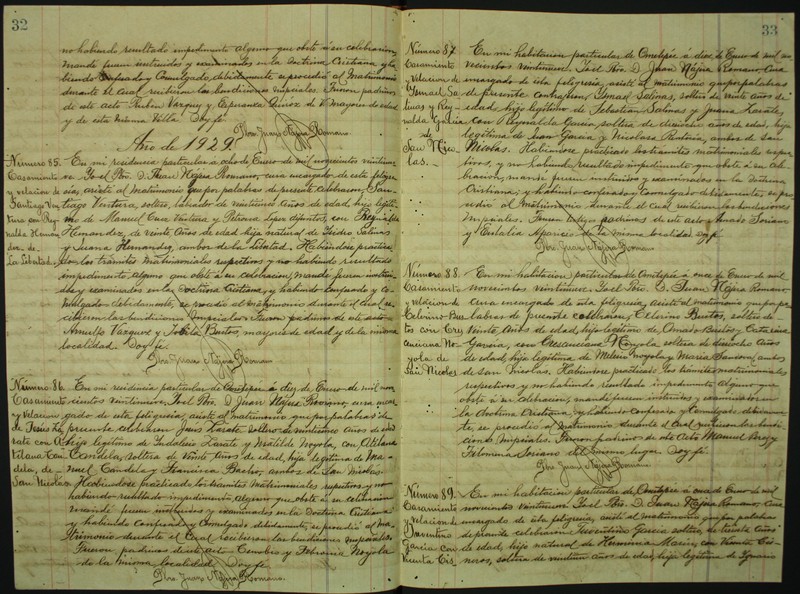 32
no habiendo resultado impedimento alguno que obste á su celebracion,
mandé fueran instruidos y examinados en la Doctrina Cristiana y ha-
biendo confesado y comulgado debidamente se procedió al Matrimonio
durante el cual recibieron las bendiciones nupciales. Fueron padrinos
de este acto Ruben Vazquez y Esperanza Quiroz de V. mayores de edad
y de esta misma Villa. Doy fé.
Pbro. Juan Nájera Romano
Año de 1929.
Número 85.
Casamiento
y velacion de
Santiago Ven-
tura con Rey-
nalda Hernan-
dez. de
La Libertad.
En mi residencia particular a ocho de Enero de mil novecientos veintinue-
ve Yo el Pbro. D. Juan Nájera Romano, cura encargado de esta feligre-
sía, asistí al Matrimonio que por palabras de presente celebraron, San-
tiago Ventura, soltero, labrador de veintinueve años de edad, hijo legíti-
mo de Manuel Cruz Ventura y Petrona Lopez difuntos, con Reynalda
Hernandez, de veinte años de edad hija natural de Isidro Salinas
y Juana Hernandez, ambos de la Libertad. Habiéndose practica-
do los trámites matrimoniales respectivos y no habiendo resultado
impedimento alguno que obste á su celebracion, mandé fueran instrui-
dos y examinados en la Doctrina Cristiana, y habiendo confesado y co-
mulgado debidamente, se procedió al Matrimonio durante el cual re-
cibieron las bendiciones nupciales. Fueron padrinos de este acto
Arnulfo Vazquez y Bustos, mayores de edad y de la misma
localidad. Doy fé.
Pbro. Juan Nájera Romano
Número 86.
Casamiento
y velacion
de Jesus Za-
rate con A
Can-
dela, de
San Nicolas
En mi residencia particular de Ometepec á diez de Enero de mil nove-
cientos veintinueve, Yo el Pbro. D. Juan Nájera Romano, cura encar-
gado de esta feligresía, asistí al matrimonio que por palabras de
presente celebraron Jesus Zarate soltero de veintinueve años de edad
hijo legítimo de Indalecio Zarate y Matilde Noyola, con
Candela, soltera de veinte años de edad, hija legítima de Ma-
nuel Candela y Francisca Bacho, ambos de San Nicolas.
Habiendose practicado los tramites matrimoniales respectivos y no
habiendo resultado impedimento alguno que obste á su celebracion
mandé fueran instruidos y examinados en la Doctrina Cristiana
y habiendo confesado y comulgado debidamente, se procedió al Ma-
trimonio durante el cual recibieron las bendiciones nupciales.
Fueron padrinos de este acto Cenobio y Febronia Noyola
de la misma localidad. Doy fé
Pbro. Juan Nájera Romano.
33
Número 87.
Casamiento
y velacion de
Ysmael Sa-
linas y Rey-
nalda Garcia
de
San Nico-
las.
En mi habitacion particular de Ometepec á diez de Enero de mil no-
vecientos veintinueve. Yo el Pbro. D. Juan Nájera Romano, Cura
encargado de esta feligresía, asistí al matrimonio que por palabras
de presente contrajeron, Ismael Salinas, soltero de veinte años de
edad, hijo legítimo de Sebastian Salinas y Juana Zarate,
con Reynalda Garcia, soltera de años de edad, hija
legítima de Juan Garcia y Nicolasa, ambos de San
Nicolas. Habiéndose practicado los trámites matrimoniales respec-
tivos, y no habiendo resultado impedimento alguno que obste á su cele-
bracion, mandé fueran instruidos y examinados en la Doctrina
Cristiana; y habiendo confesado y comulgado debidamente, se pro-
cedió al Matrimonio durante el cual recibieron las bendiciones
nupciales. Fueron padrinos de este acto Amado Soriano
y Eulalia Aparicio de la misma localidad. Doy fé.
Pbro. Juan Nájera Romano
Número 88.
Casamiento
y velacion de
Celerino Bus-
tos con Cres-
enciana No-
yola de
San Nicolas
En mi habitacion particular de Ometepec á once de Enero de mil
novecientos veintinueve. Yo el Pbro. D. Juan Nájera Romano
cura encargado de esta feligresía, asistí al matrimonio que por pa-
labras de presente celebraron, Celerino Bustos, soltero de
veinte años de edad, hijo legítimo de Amado Bustos y Catarina
Garcia, con Crescenciana Noyola soltera de dieciocho años
de edad, hija legítima de Melecio Noyola y Maria, ambos
de San Nicolas. Habiendose practicado los tramites matrimoniales
respectivos y no habiendo resultado impedimento alguno que
obste á su celebracion, mandé fueran instruidos y examinados en
la Doctrina Cristiana, y habiendo confesado y comulgado debidamen-
te, se procedió al Matrimonio durante el cual recibieron las bendi-
ciones nupciales. Fueron padrinos de este Acto Manuel y
Filomena Soriano del mismo lugar. Doy fé.
Pbro. Juan Nájera Romano
Número 89.
Casamiento
y velacion de
Juventino
Garcia con
Vicenta Cis-
En mi habitacion particular de Ometepec á once de Enero de mil
novecientos veintinueve, Yo el Pbro. D. Juan Nájera Romano, cura
encargado de esta feligresía, asistí al matrimonio que por palabras
de presente celebraron Juventino Garcia soltero, de treinta años
de edad, hijo natural de Herminia Marin, con Vicenta Cis-
neros, soltera de veintiun años de edad, hija legítima de Ignacio